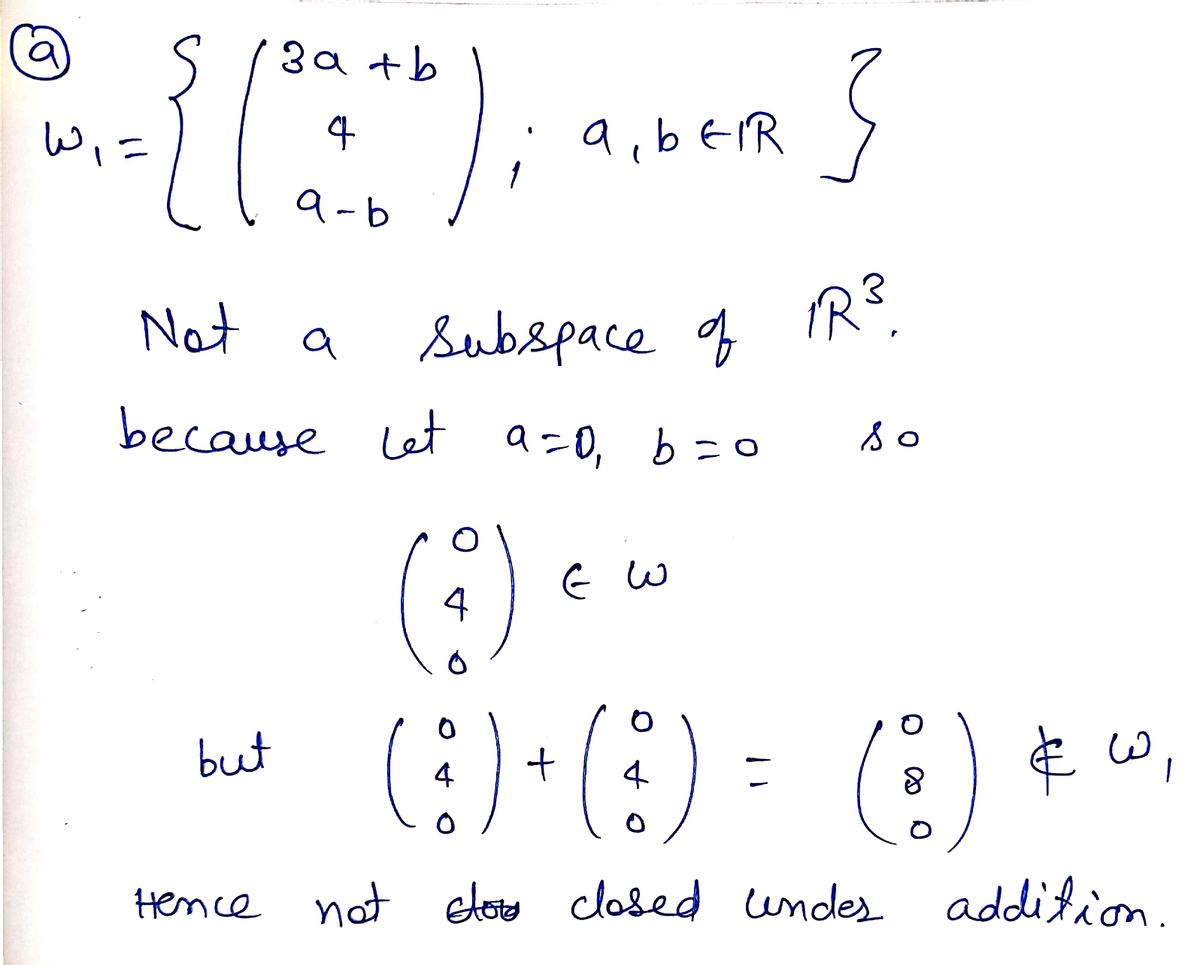 (a)
W₁ = { ( 3a + b
4
a - b ) ; a, b ∈ ℝ }
Not a subspace of ℝ³.
because let a=0, b=0 so
( 0
4
0 ) ∈ W
but ( 0 4 0 ) + ( 0 4 0 ) = ( 0 8 0 ) ∉ W₁
Hence not closed under addition.